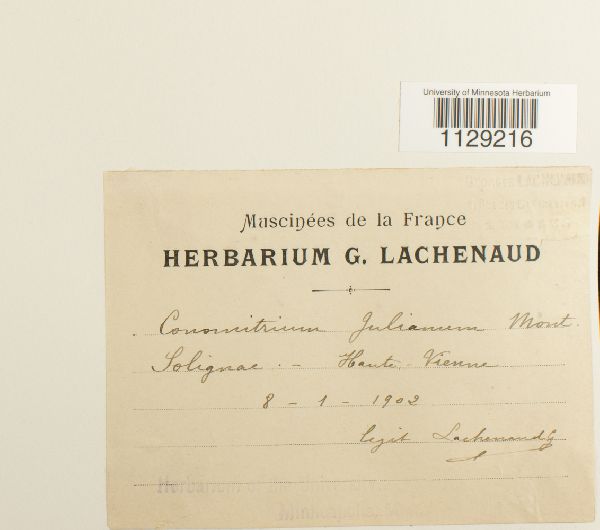 University of Minnesota Herbarium
1129216
Muscinées de la France
HERBARIUM G. LACHENAUD
Conomitrium Julianum Mont.
Solignac. - Haute-Vienne
8 - 1 - 1902
legit Lachenaud
Herbarium of the University
Minneapolis